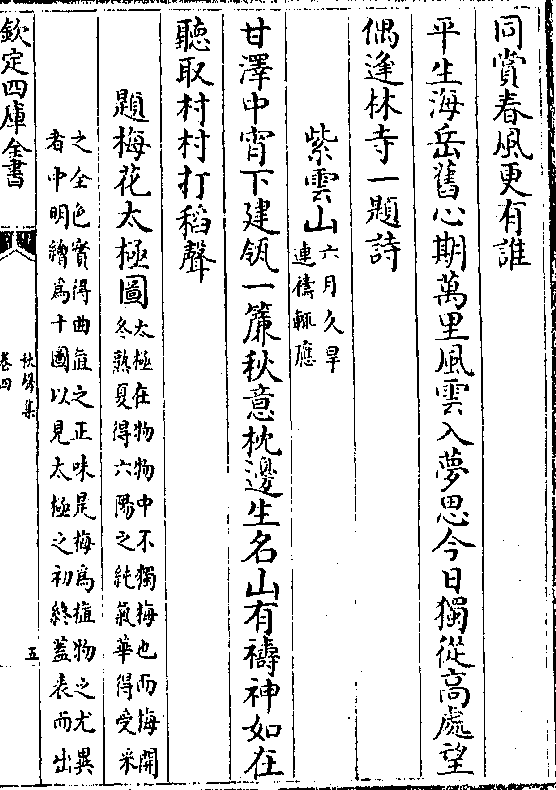 同賞春風更有誰
平生海岳舊心期萬里風雲入夢思今日獨從高處望
偶逢林寺一題詩
紫雲山
六月久旱
連禱輒應
甘澤中宵下建瓴一簾秋意枕邊生名山有禱神如在
聽取村村打稻聲
題梅花太極圖
太極在物物中不獨梅也而梅開
冬熟夏得六陽之純氣華得受采
之全色實得曲直之正味是梅爲植物之尤異
者中明繪爲十圖以見太極之初終蓋表而出
欽定四庫全書
秋聲集
卷四
五